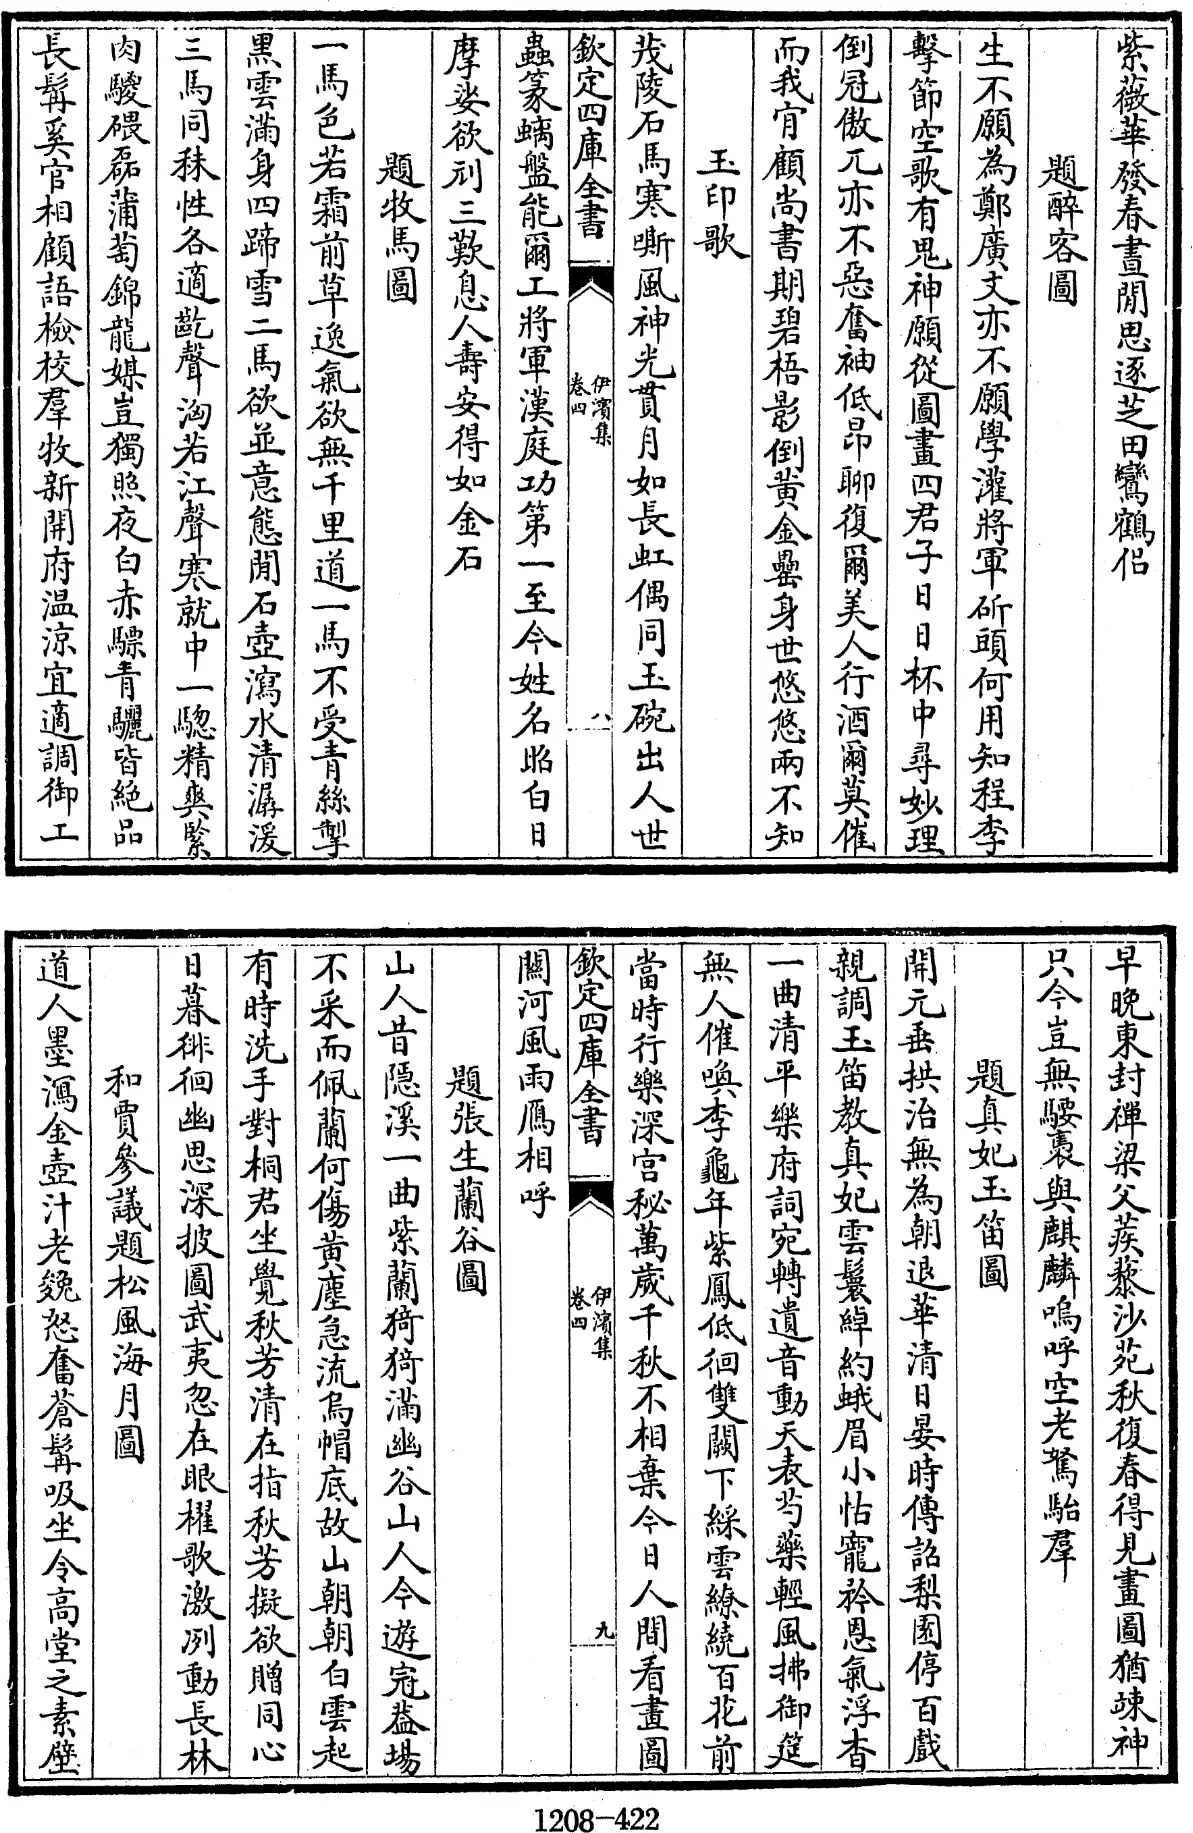 紫薇華發春晝閒思逐芝田鸞鶴侣
題醉容圖
生不願為鄭廣文亦不願學灌將軍斫頭何用知程李
擊節空歌有鬼神願從圖畫四君子日日杯中尋妙理
倒冠傲兀亦不惡奮袖低昂聊復爾美人行酒爾莫催
而我肎顧尚書期碧梧影倒黄金罍身世悠悠兩不知
玉印歌
茂陵石馬寒嘶風神光貫月如長虹偶同玉碗出人世
欽定四庫全書
伊濱集
卷四
八
蟲篆螭盤能爾工將軍漢庭功第一至今姓名昭白日
摩挲欲刓三歎息人壽安得如金石
題牧馬圖
一馬色若霜前草逸氣欲無千里道一馬不受青絲掣
黒雲滿身四蹄雪二馬欲並意態閒石壺瀉水清潺湲
三馬同秣性各適齕聲洶若江聲寒就中一驄精爽緊
肉騣碨磊蒲萄錦龍媒豈獨照夜白赤驃青驪皆絶品
長髯奚官相顧語檢校羣牧新開府温涼宜適調御工
早晩東封禪梁父蒺藜沙苑秋復春得見畫圖猶竦神
只今豈無騕褭與麒麟嗚呼空老駑駘羣
題真妃玉笛圖
開元垂拱治無為朝退華清日晏時傳詔梨園停百戲
親調玉笛教真妃雲鬟綽約蛾眉小怙寵矜恩氣浮杳
一曲清平樂府詞宛轉遺音動天表芍藥輕風拂御筵
無人催喚李龜年紫鳳低徊雙闕下綵雲繚繞百花前
當時行樂深宫秘萬歲千秋不相棄今日人間看畫圖
欽定四庫全書
伊濱集
卷四
九
關河風雨鴈相呼
題張生蘭谷圖
山人昔隱溪一曲紫蘭猗猗滿幽谷山人今遊冠葢場
不采而佩蘭何傷黄塵急流烏帽底故山朝朝白雲起
有時洗手對桐君坐覺秋芳清在指秋芳擬欲贈同心
日暮徘徊幽思深披圖武夷忽在眼櫂歌激冽動長林
和賈參議題松風海月圖
道人墨瀉金壺汁老㕙怒奮蒼髯吸坐令高堂之素壁
1208-422